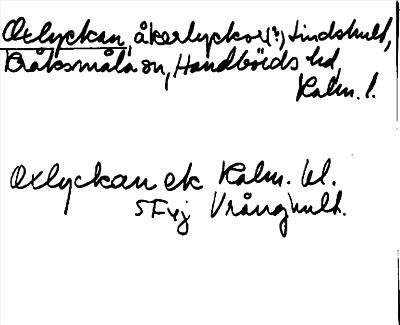 Oxlyckan, åkerlyckor(?), Lindshult,
Bråksmåla sn, Handbörds hd,
Kalm. l.
Oxlyckan ek Kalm. bl.
5F4j Vrånghult.